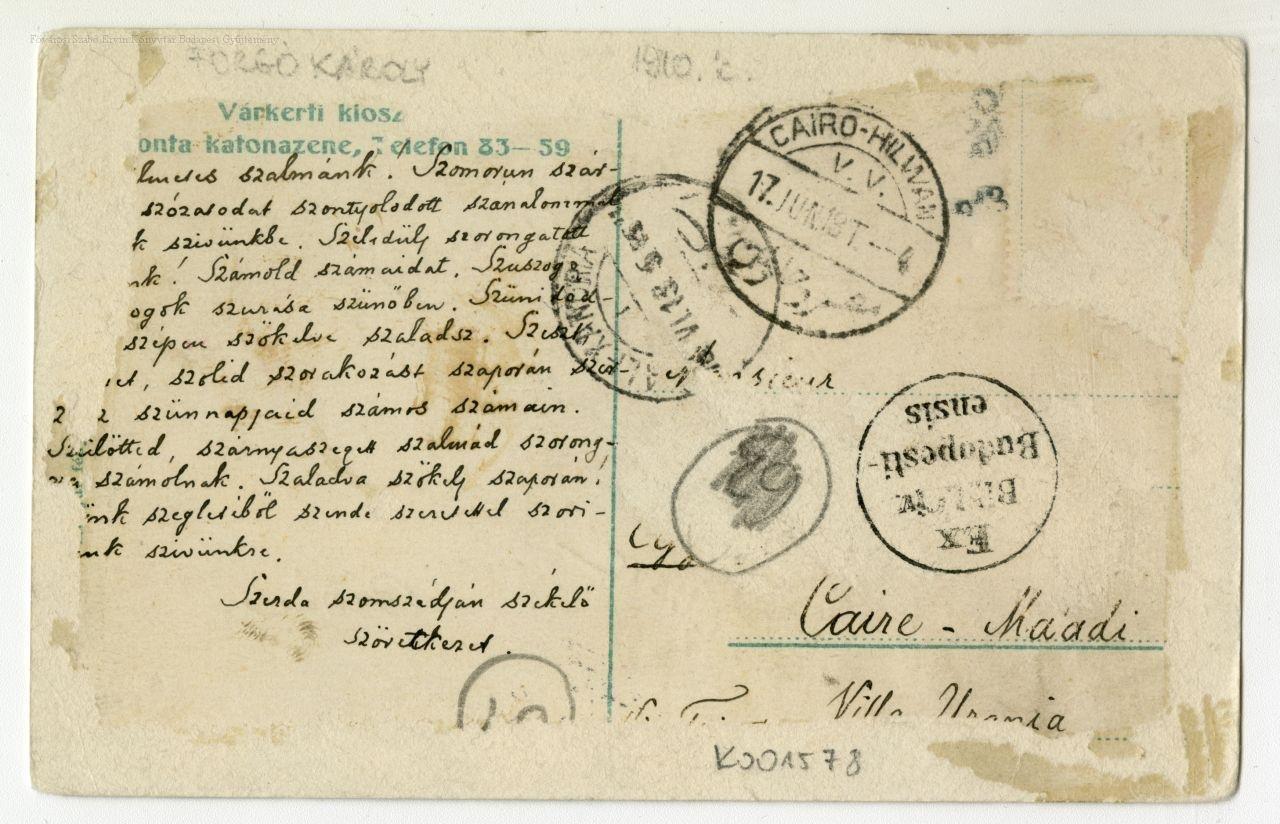 Fővárosi Szabó Ervin Könyvtár Budapest Gyűjtemény
FORGÓ KÁROLY
1910.
Várkerti kiosz
onta katonazene, Telefon 83—59
szalmánk! Szomorun szár-
szózasodat szontyolodott
k szivünkbe. Szelidülj szorongatott
nk! Számold számaidat. Szuszog
ogók szurása szünőben.
szépen szökelve szaladsz.
szolid szorakozást szaporán szer-
szünnapjaid számos számain.
Szülötted, szárnyaszegett szalmád szorong-
va számolnak. Szaladva szökelj szaporán!
ünk szegletéből szende szeretettel szori-
nk szivünkre.
Szerda szomszédján székelő
Szövetkezet.
CAIRO-HILWAN
V. V.
17.JUN.13 T.--4
ALEXANDRIA
Monsieur
Ex
Bibl. Civ.
Budapesti-
ensis
Caire - Maadi
Villa Urania
K001578